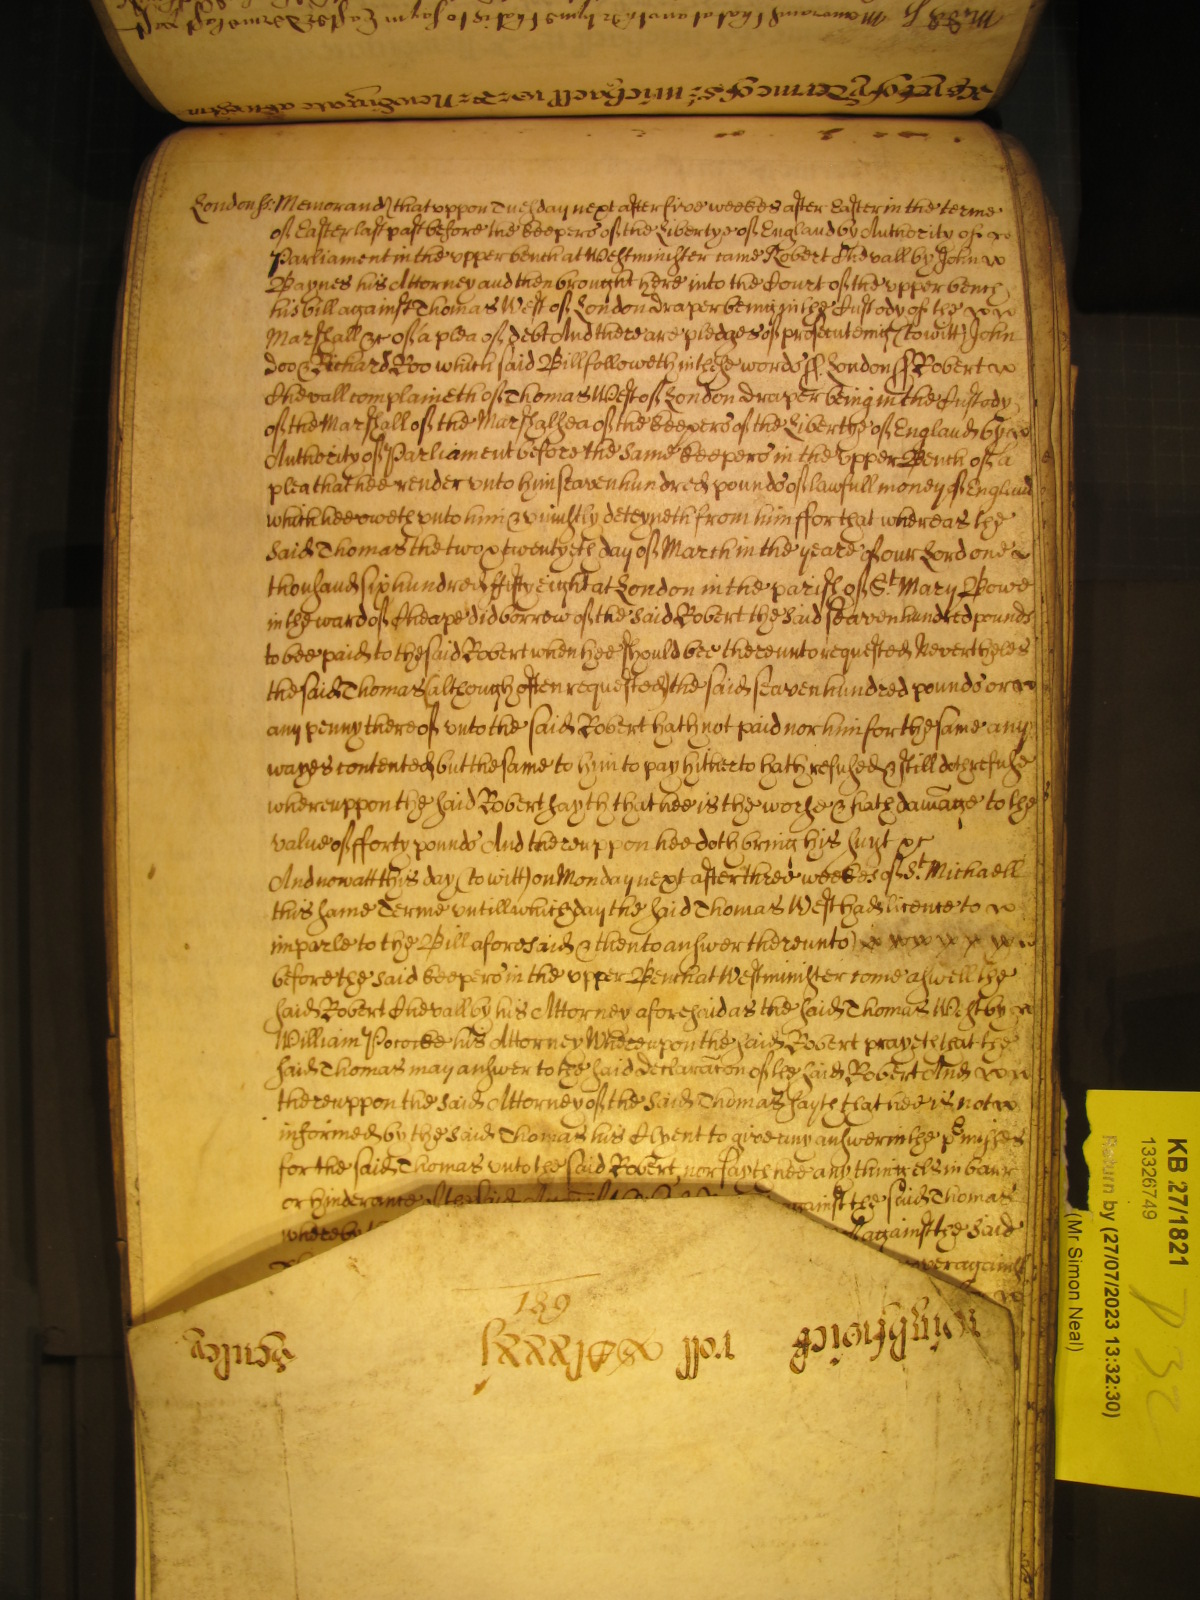 London ss: Memorand that uppon Tuesday next after five weekes after Easter in the terme
of Easter last past before the keepers of the Libertye of England by Authority of
Parliament in the upper bench at Westminster came Robert Chevall by John
Baynes his Attorney and then brought here into the Court of the upper bench
his bill against Thomas West of London draper being in the Custody of the
Marshall &c of a plea of debt And there are pledges of prosecuteing (to witt) John
Doo & Richard Roo which said Bill followeth in these words ss London ss Robert
Chevall complaineth of Thomas West of London draper being in the Custody
of the Marshall of the Marshalsea of the keepers of the Libertye of England by
Authority of Parliament before the same keepers in the Upper Bench of a
plea that hee render unto him seaven hundred pounds of lawfull money of England
which hee oweth unto him & uniustly deteyneth from him ffor that whereas the
said Thomas the two & twentyeth day of March in the yeare of our Lord one
thousand six hundred fifty eight at London in the parish of St Mary Bowe
in the ward of Cheape did borrow of the said Robert the said seaven hundred pounds
to bee paid to the said Robert when hee should bee thereunto requested Nevertheles
the said Thomas (although often requested) the said seaven hundred pounds or
any penny thereof unto the said Robert hath not paid nor him for the same any
wayes contented but the same to him to pay hitherto hath refused & still doth refuse
whereuppon the said Robert sayth that hee is the worse & hath damage to the
value of fforty pounds And thereuppon hee doth bring his suyt &c
And now att this day (to witt) on Monday next after three weekes of St Michaell
this same Terme untill which day the said Thomas West had licence to
imparle to the Bill aforesaid & then to answer thereunto)
before the said keepers in the upper Bench at Westminster come aswell the
said Robert Chevall by his Attorney aforesaid as the said Thomas West by
William Pococke his Attorney Whereupon the said Robert prayeth that the
said Thomas may answer to the said declaracon of the said Robert And
thereuppon the said Attorney of the said Thomas sayth that hee is not
informed by the said Thomas his Clyent to give any answer in the p'misses
for the said Thomas unto the said Robert nor sayth hee any thing els in barr
or hinderance of the said against the said Thomas
whereby against the said
over against
189
roll
KB 27/1821
13326749
Return by (27/07/2023 13:32:30)
(Mr Simon Neal)
P 32